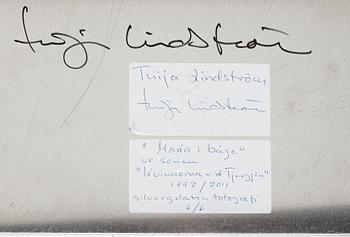 Tuija Lindström
Tuija Lindström
Tuija Lindström
"Maria i beige"
ur serien
"Kvinnorna vid Tjursjön"
1992/2011
silvergelatin fotografi
6/6